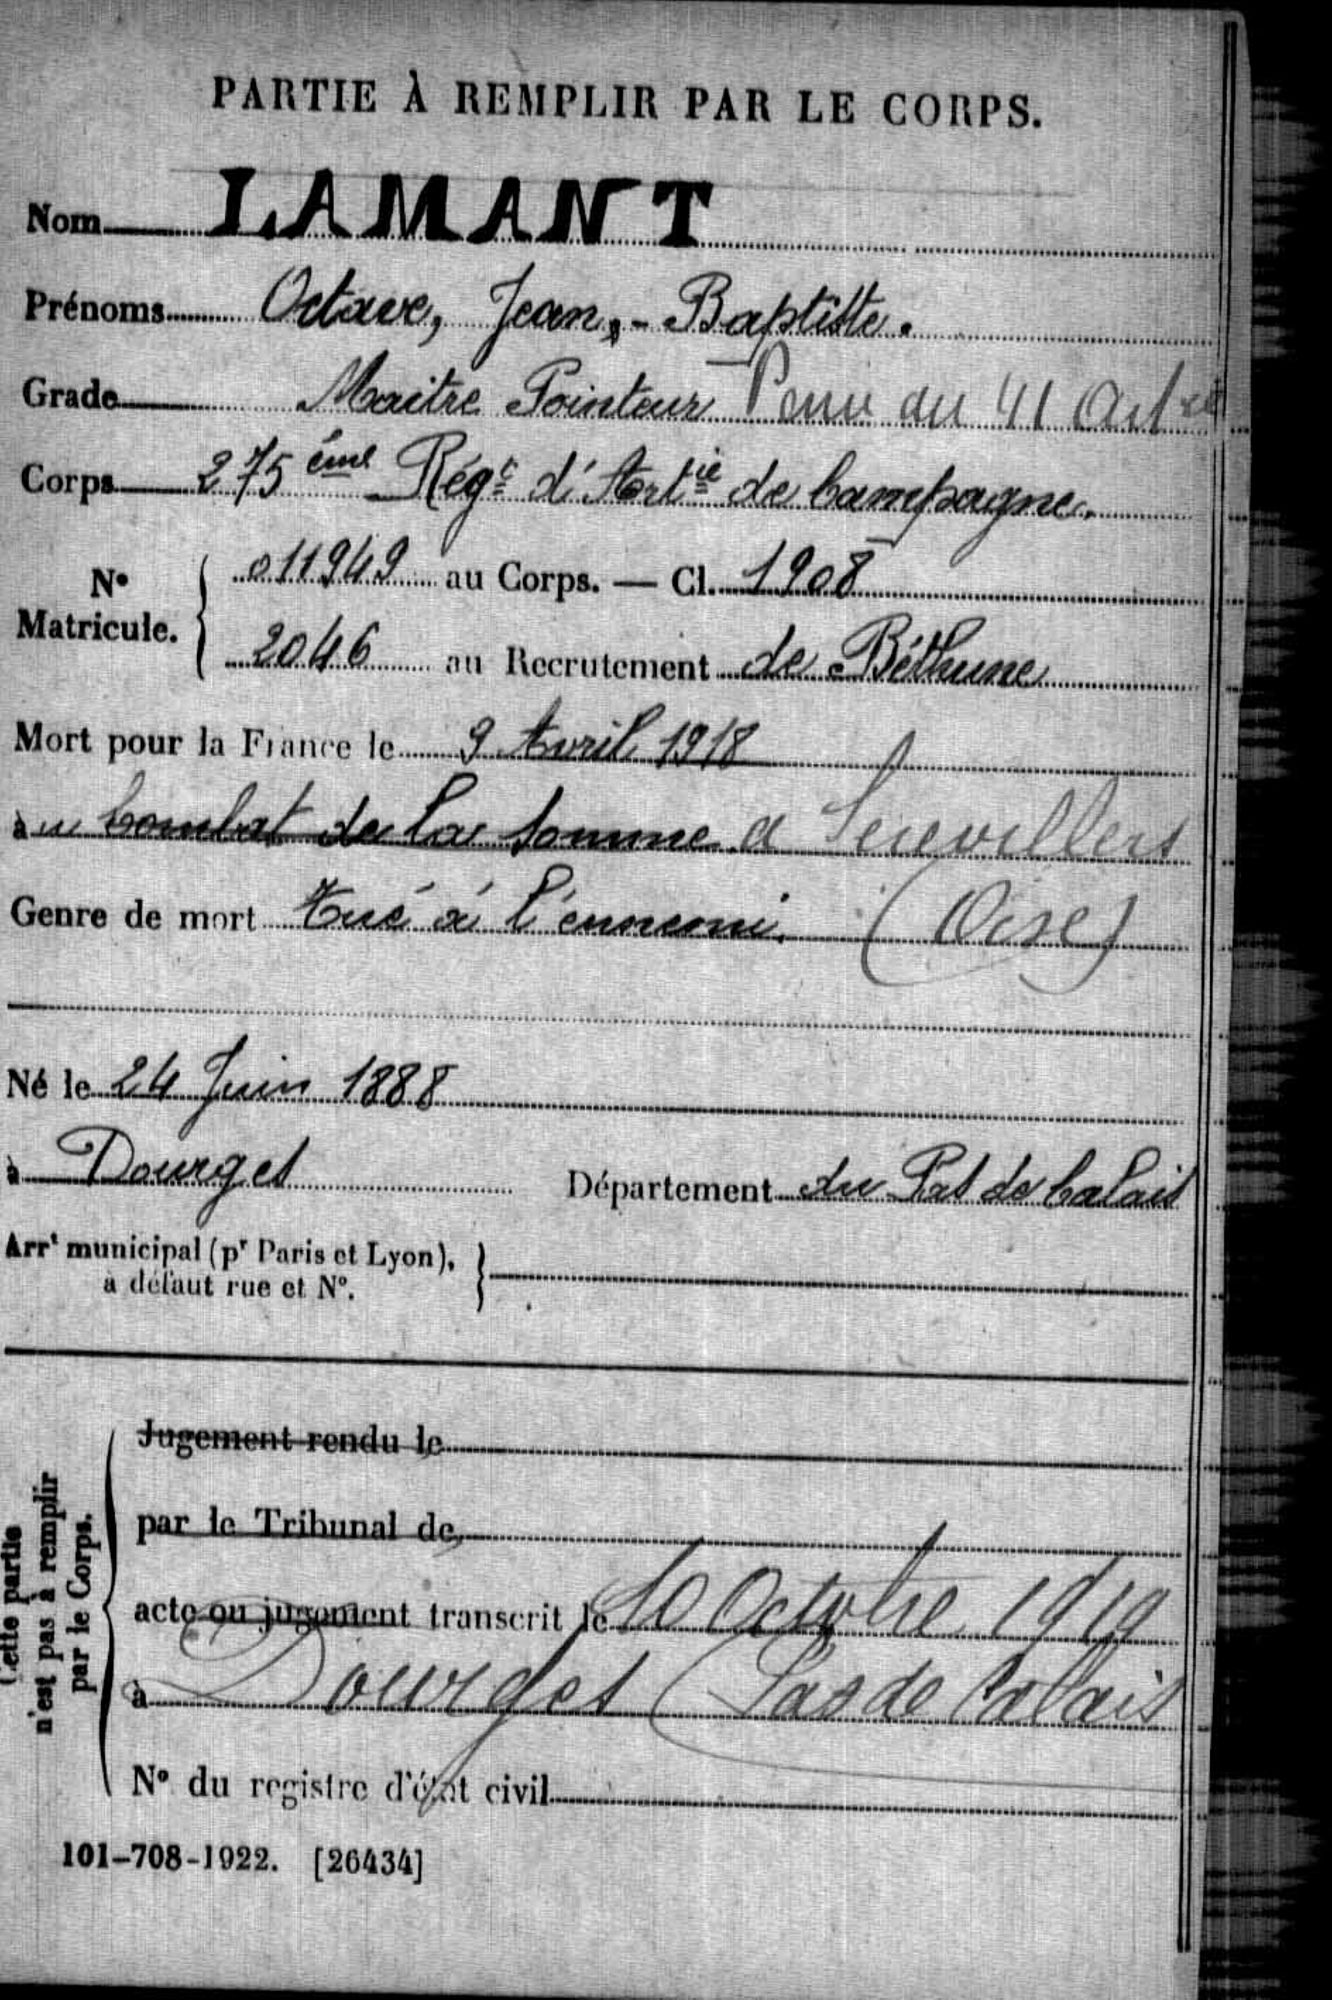 PARTIE À REMPLIR PAR LE CORPS.
Nom LAMANT
Prénoms Octave, Jean,-Baptiste.
Grade Maitre Pointeur Venu du 41 Art ie
Corps 275 ème Régt d'Artie de Campagne.
No Matricule. 011949 au Corps. — Cl. 1908
2046 au Recrutement de Béthune
Mort pour la France le 9 Avril 1918
à u Combat de la Somme a Serevillers
Genre de mort Tué à l'ennemi. (Oise)
Né le 24 Juin 1888
à Dourges Département du Pas de Calais
Arrt municipal (pr Paris et Lyon),
à défaut rue et No.
Cette partie
n'est pas à remplir
par le Corps.
Jugement rendu le
par le Tribunal de
acte ou jugement transcrit le 10 Octobre 1919
à Dourges (Pas de Calais
No du registre d'état civil
101-708-1922. [26434]